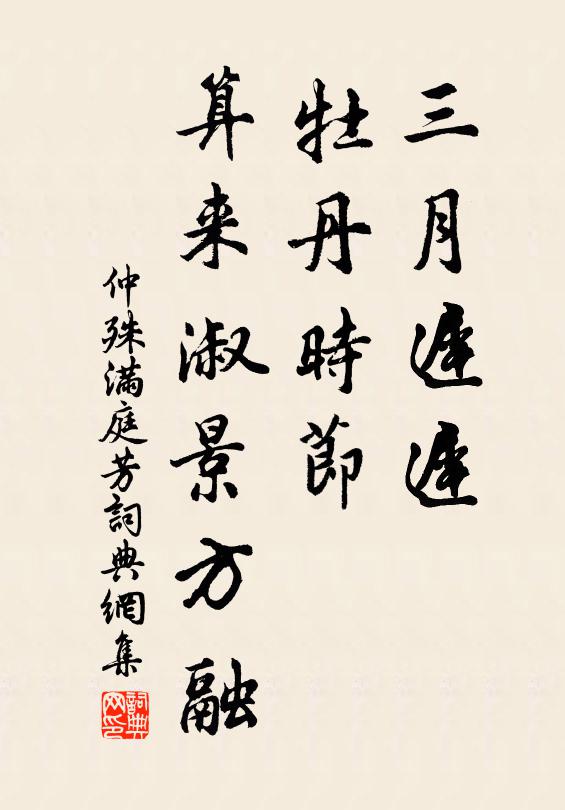 三月遲遲
牡丹時節
算来淑景方融
仲殊滿庭芳詞典網集
詞典网印